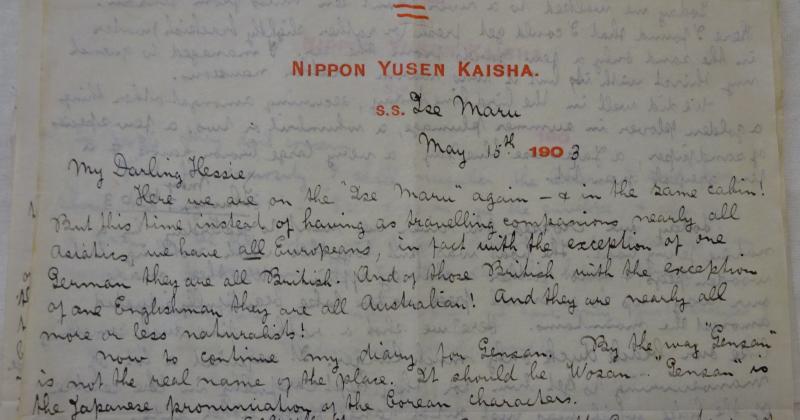 NIPPON YUSEN KAISHA.
S.S. Ise Maru
May 15th 1903
My Darling Hessie
Here we are on the "Ise Maru" again – & in the same cabin!
But this time, instead of having as travelling companions nearly all
Asiatics, we have all Europeans, in fact with the exception of one
German they are all British. And of those British with the exception
of one Englishman they are all Australian! And they are nearly all
more or less naturalists!
Now to continue my diary for Gensan. By the way "Gensan"
is not the real name of the place. It should be Wosan. "Gensan" is
the Japanese pronunciation of the Corean characters.